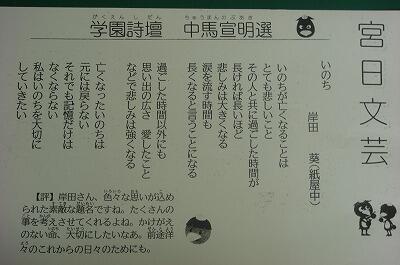 宮日文芸
がくえんしだん ちゅうまんのぶあき
学園詩壇 中馬宣明選
いのち
岸田 葵(紙屋中)
いのちが亡くなることは
とても悲しいこと
その人と共に過ごした時間が
長ければ長いほど
悲しみは大きくなる
涙を流す時間も
長くなると言うことになる
過ごした時間以外にも
思い出の広さ 愛したこと
などで悲しみは強くなる
亡くなったいのちは
元には戻らない
それでも記憶だけは
なくならない
私はいのちを大切に
していきたい
【評】岸田さん、色々な思いが込め
られた素敵な題名ですね。たくさんの
事を考えさせてくれるよね。かけがえ
のない命、大切にしたいなあ。前途洋
々のこれからの日々のためにも。